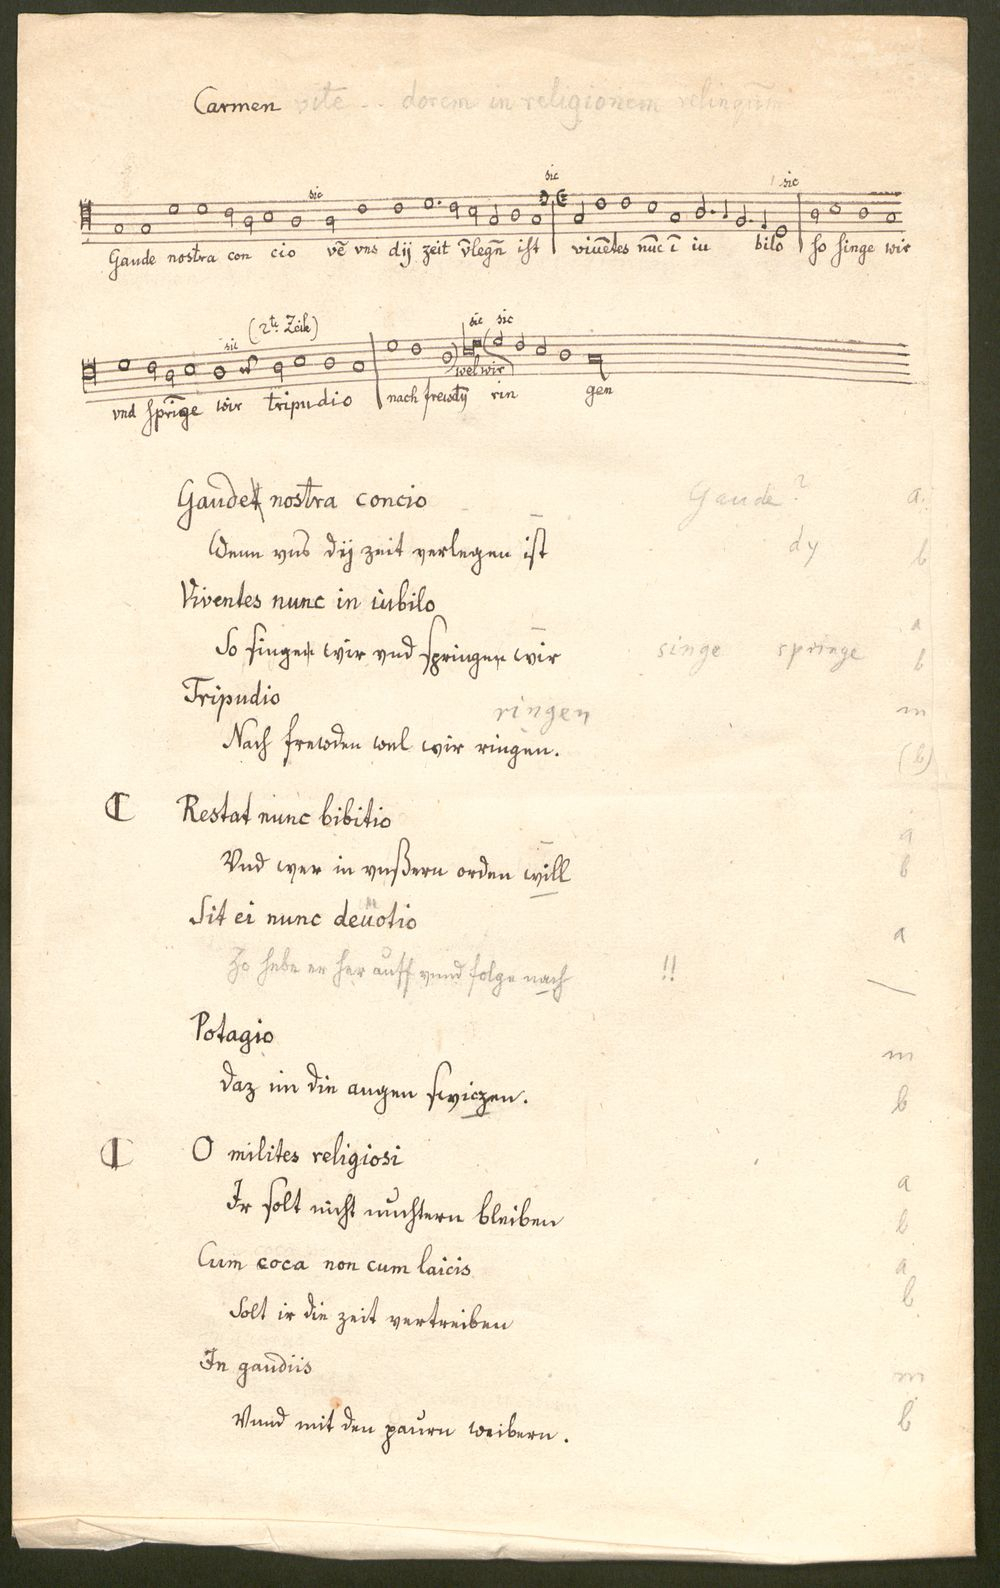 Carmen vite .. dorem in religionem
sic sic sic
Gaude nostra con cio vē vns dij zeit v̄legn̄ ist viuētes nūc ī iu bilo so singe wir
(2te Zeile)
sic sic sic
vnd sprīge wir tripudio nach frewdn̄ wel wir rin gen
Gaudet nostra concio Gaude? a.
Wenn vns dij zeit verlegen ist dy b
Viventes nunc in iubilo a
So singen wir vnd springen wir singe springe b
Tripudio m
ringen
Nach frewden wel wir ringen. (b)
ℂ Restat nunc bibitio a
Vnd wer in vnßern orden will b
Sit ei nunc deuotio a
Zo hebe er her auff vnnd folge nach !!
Potagio m
daz im die augen swiczen. b
ℂ O milites religiosi a
Ir solt nicht nuchtern bleiben b
Cum coca non cum laicis a
Solt ir die zeit vertreiben b
In gaudiis m
Vnnd mit den paurn weibern. b